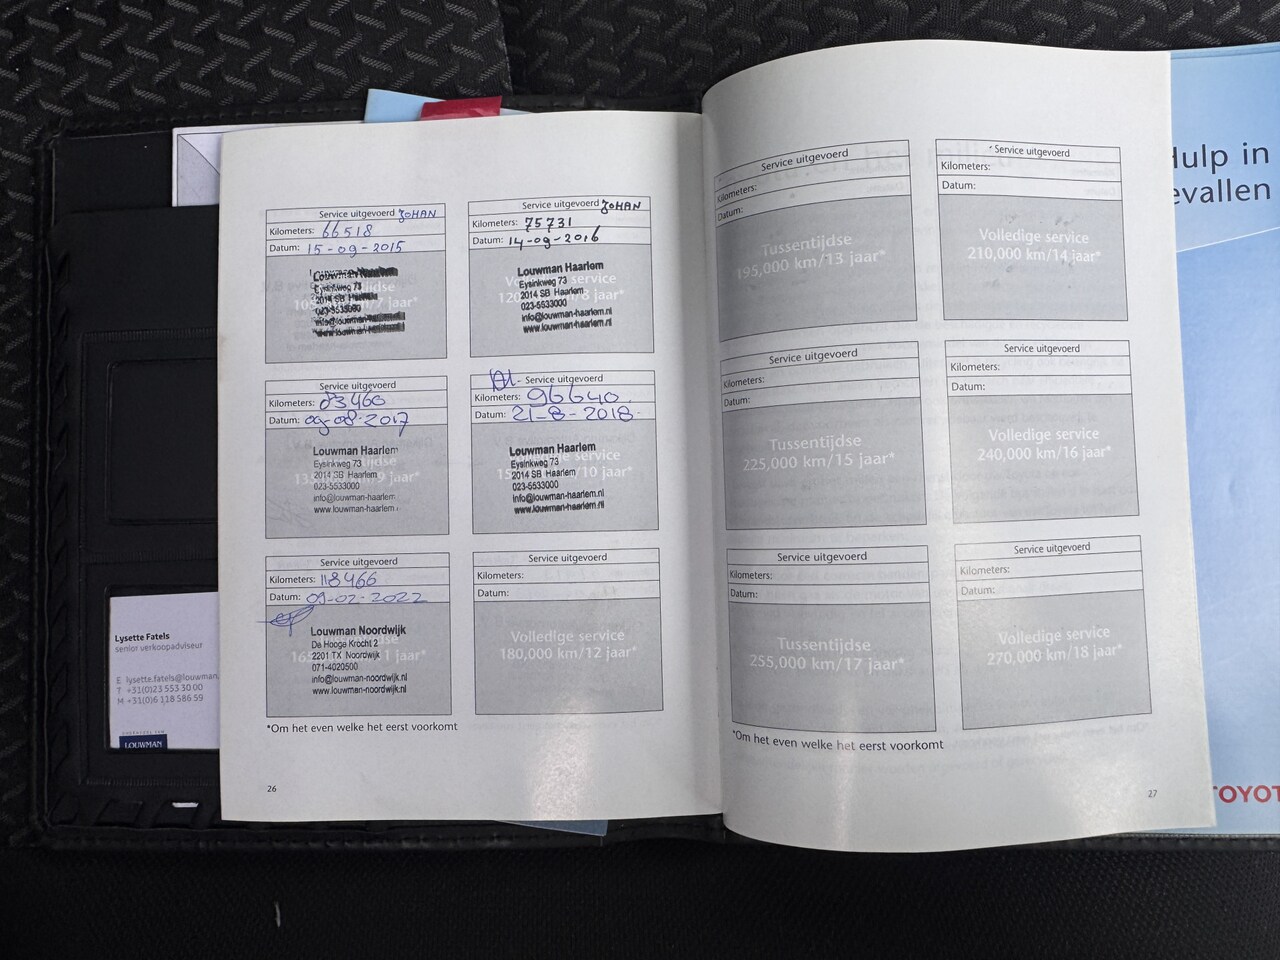 Service uitgevoerd JOHAN
Kilometers: 66518
Datum: 15-09-2015
Louwman Haarlem
Eysinkweg 73
2014 SB Haarlem
023-5533000
info@louwman-haarlem
www.louwman-haarlem
Service uitgevoerd JOHAN
Kilometers: 75731
Datum: 14-09-2016
Louwman Haarlem
Eysinkweg 73
2014 SB Haarlem
023-5533000
info@louwman-haarlem.nl
www.louwman-haarlem.nl
Service uitgevoerd
Kilometers: 83460
Datum: 09-08-2017
Louwman Haarlem
Eysinkweg 73
2014 SB Haarlem
023-5533000
info@louwman-haarlem
www.louwman-haarlem
Service uitgevoerd
Kilometers: 96640
Datum: 21-8-2018
Louwman Haarlem
Eysinkweg 73
2014 SB Haarlem
023-5533000
info@louwman-haarlem.nl
www.louwman-haarlem.nl
Service uitgevoerd
Kilometers: 118466
Datum: 09-02-2022
Louwman Noordwijk
De Hooge Krocht 2
2201 TX Noordwijk
071-4020500
info@louwman-noordwijk.nl
www.louwman-noordwijk.nl
Service uitgevoerd
Kilometers:
Datum:
Volledige service
180,000 km/12 jaar*
*Om het even welke het eerst voorkomt
26
Service uitgevoerd
Kilometers:
Datum:
Tussentijdse
195,000 km/13 jaar*
Service uitgevoerd
Kilometers:
Datum:
Volledige service
210,000 km/14 jaar*
Service uitgevoerd
Kilometers:
Datum:
Tussentijdse
225,000 km/15 jaar*
Service uitgevoerd
Kilometers:
Datum:
Volledige service
240,000 km/16 jaar*
Service uitgevoerd
Kilometers:
Datum:
Tussentijdse
255,000 km/17 jaar*
Service uitgevoerd
Kilometers:
Datum:
Volledige service
270,000 km/18 jaar*
*Om het even welke het eerst voorkomt
27
Hulp in
evallen
TOYOT
Lysette Fatels
senior verkoopadviseur
E lysette.fatels@louwman.
T +31(0)23 553 30 00
M +31(0)6 118 586 59
LOUWMAN